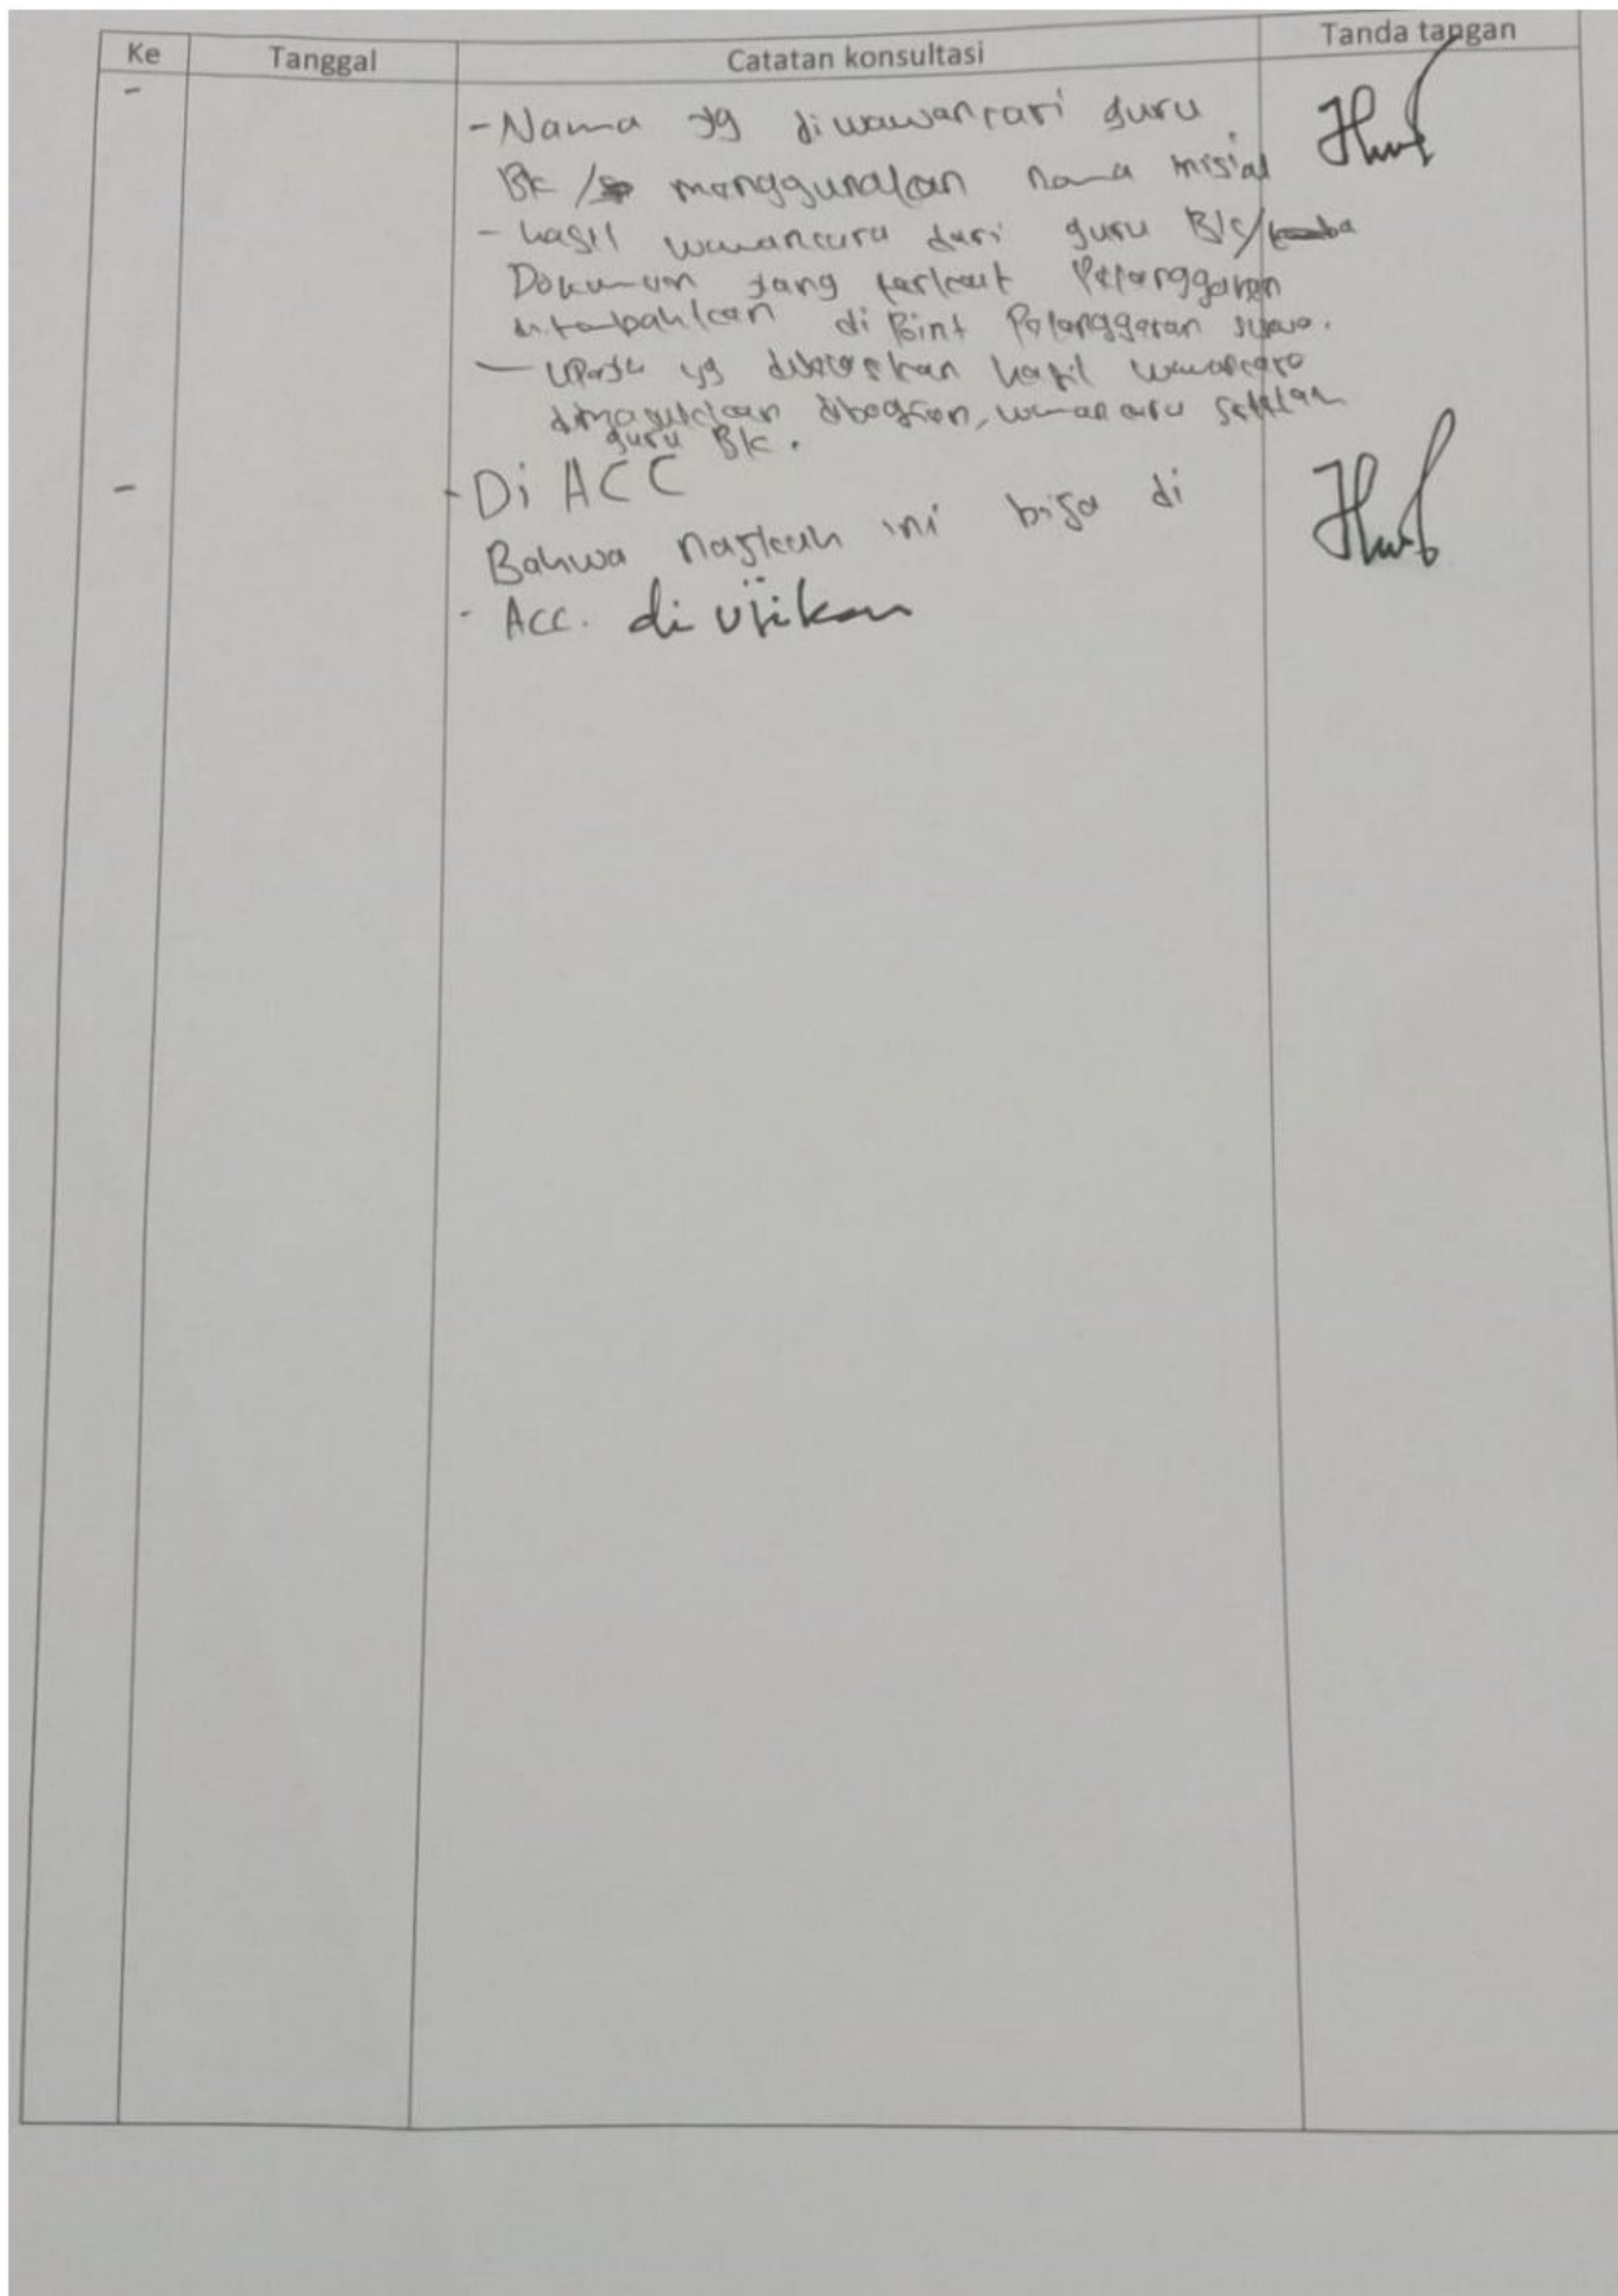 Ke Tanggal Catatan konsultasi Tanda tangan
- Nama yg diwawancari guru
BK / menggunakan nama misial
- hasil wawancara dari guru BK/
Dokumen yang terkait Pelanggaran
ditambahkan di Point Pelanggaran siswa.
- yg hasil wawancara
dimasukkan dibagian, wawancara setelah
guru BK.
- - Di ACC
Bahwa naskah ini bisa di
- Acc. di ujikan